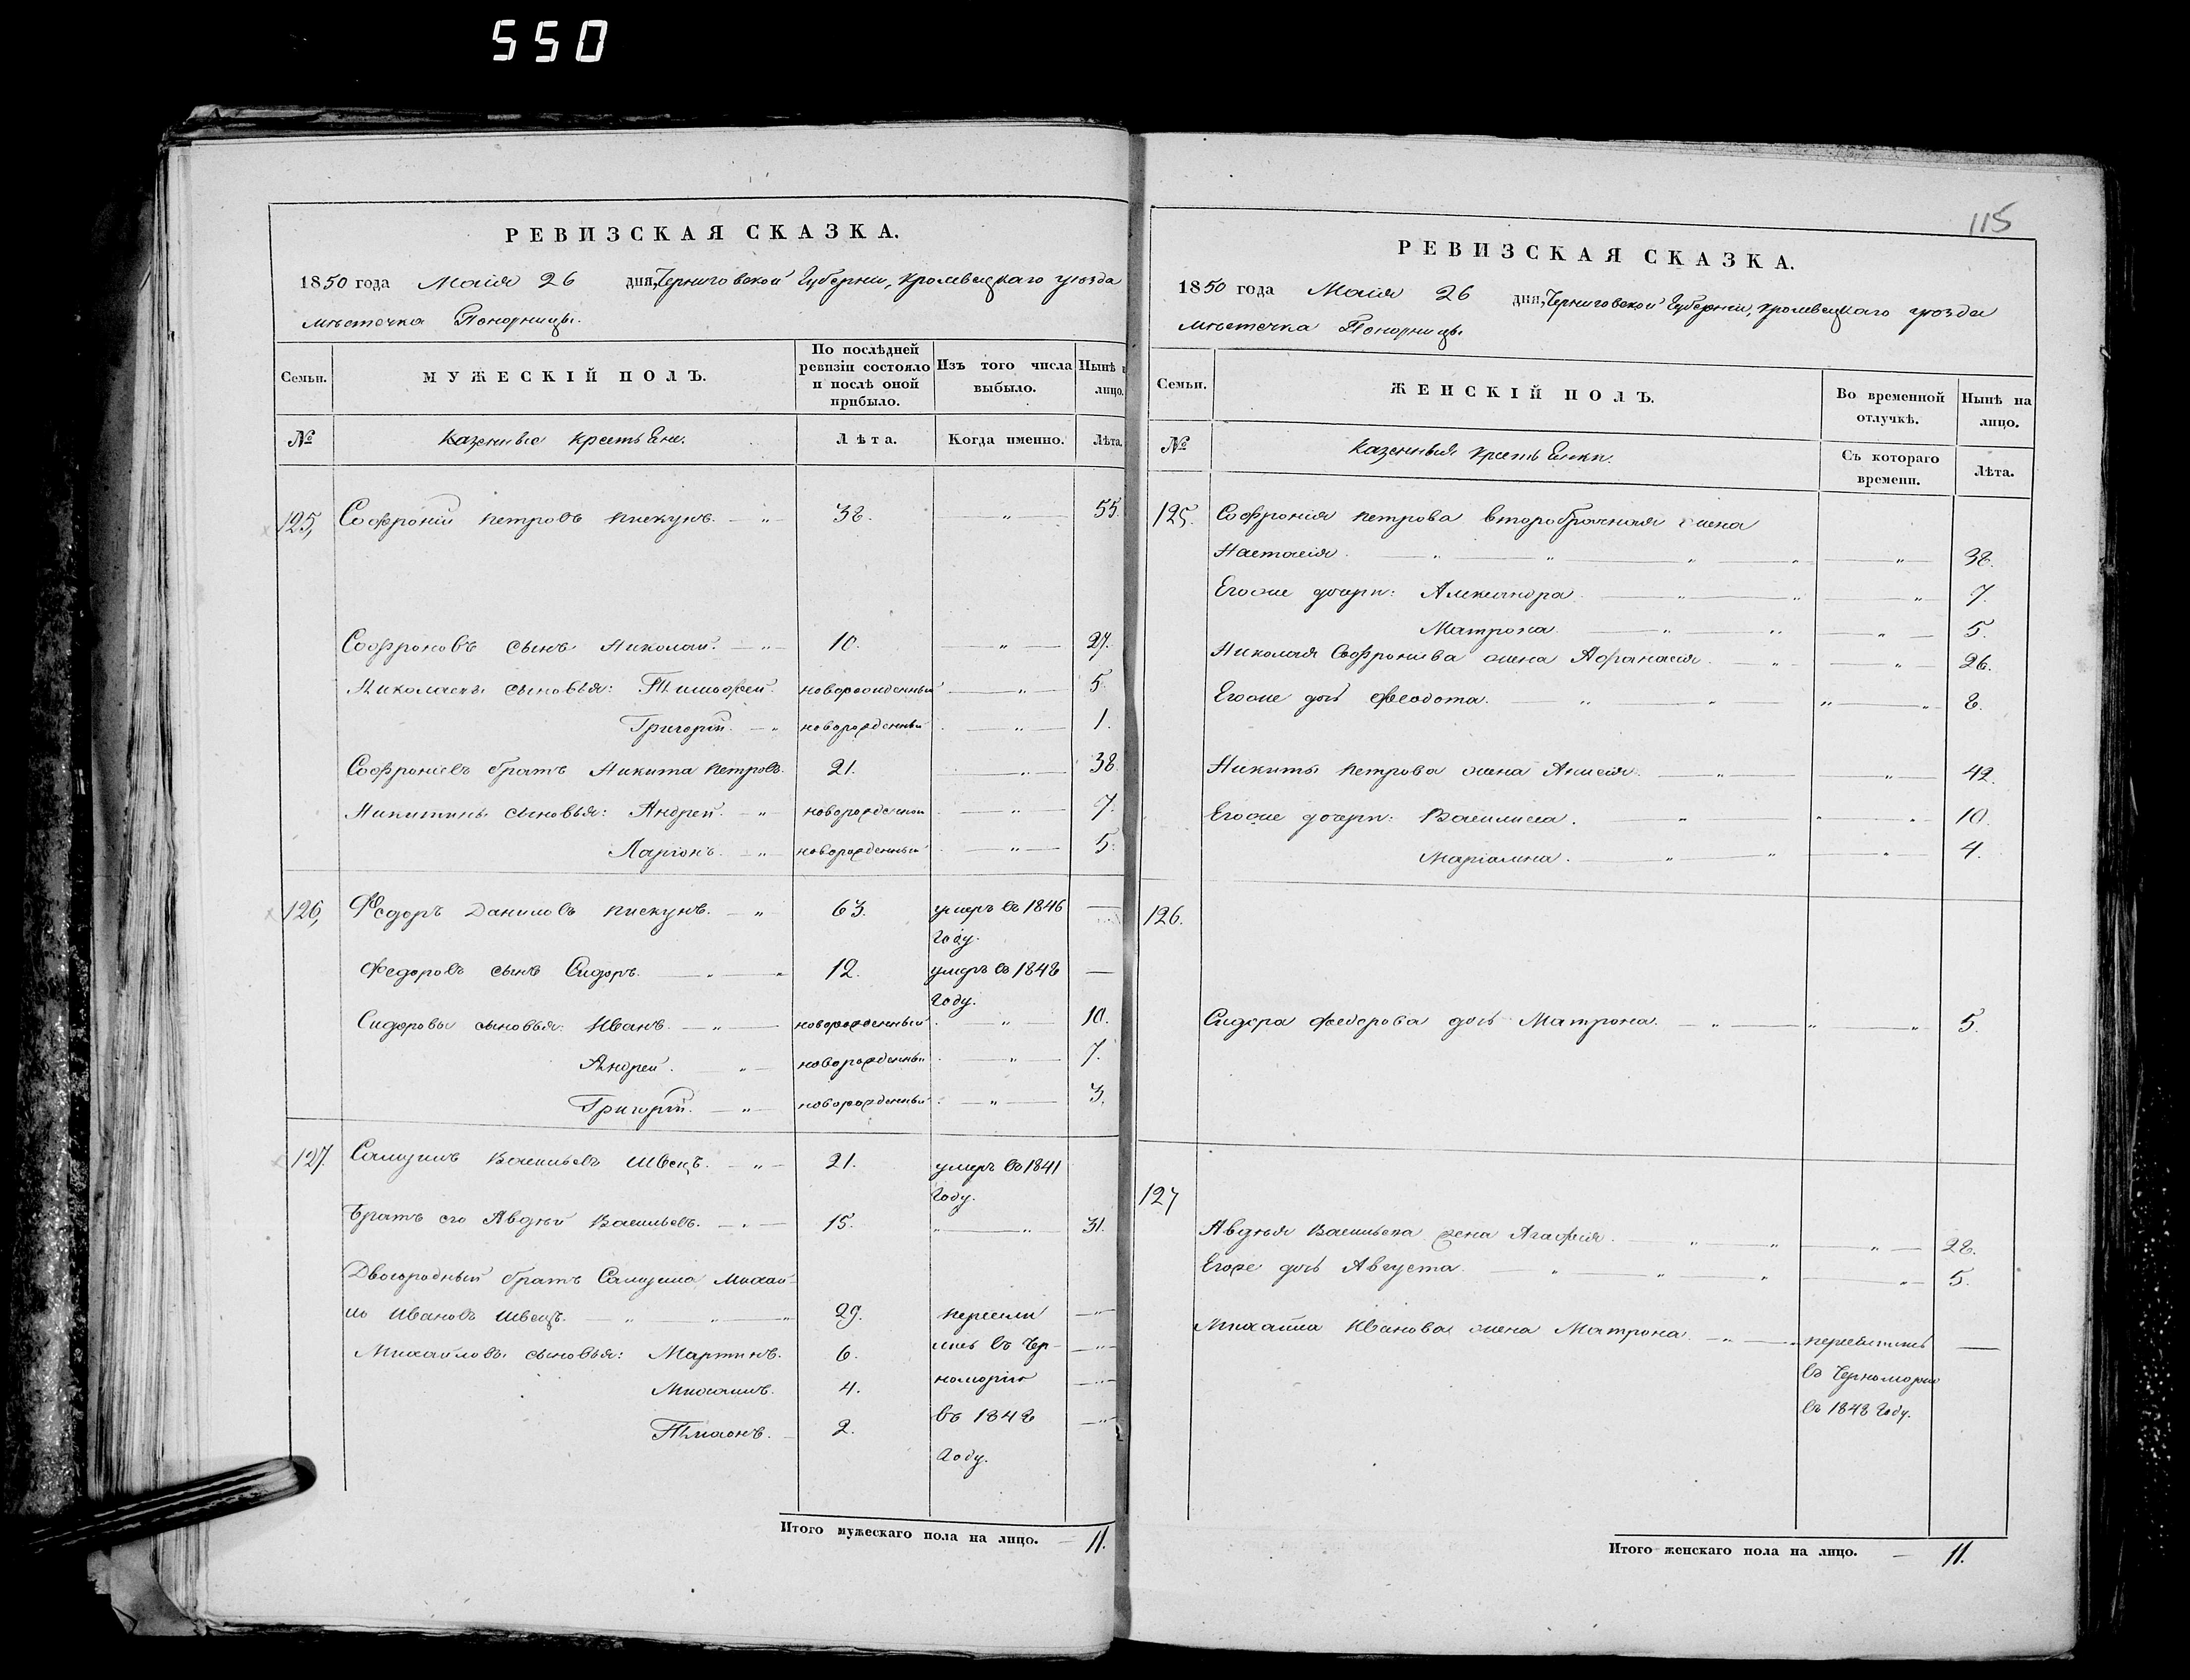 550
РЕВИЗСКАЯ СКАЗКА.
1850 года Маія 26 дня, Черниговской Губерніи, Кролевецкаго уѣзда
мѣстечка Понорницы.
Семьи. МУЖЕСКІЙ ПОЛЪ. По послѣдней ревизіи состояло и послѣ оной прибыло. Изъ того числа выбыло. Нынѣ лицо.
№ Казенные крестьяне. Лѣта. Когда именно. Лѣта.
125, Софроній Петровъ Пискунъ. — „ 38. „ — 55.
Софроновъ сынъ Николай. — „ — 10. — „ — 27.
Николаевы сыновья: Тимофей. новорожденный — „ — 5.
Григорій. — „ новорожденный — „ — 1.
Софроніевъ братъ Никита Петровъ. 21. „ — 38.
Никитины сыновья: Андрей. — „ новорожденный — „ — 7.
Ларіонъ. — „ новорожденный — „ — 5.
126, Федоръ Даниловъ Пискунъ. — „ 63. умеръ въ 1846 —
году.
Федоровъ сынъ Сидоръ. — „ — „ 12. умеръ въ 1848 —
году.
Сидоровы сыновья: Иванъ. — „ — новорожденный „ 10.
Андрей. „ — новорожденный — „ — 7.
Григорій. — „ — новорожденный — „ — 3.
127. Самуилъ Васильевъ Швецъ. — „ — 21. умеръ въ 1841
году.
Братъ его Авдѣй Васильевъ. — „ — 15. „ — „ 31.
Двоюродный братъ Самуила Михай-
ло Ивановъ Швецъ. — „ — „ — „ 29. пересели — „
Михайловы сыновья: Мартинъ. 6. лись въ Чер- — „ —
Михаилъ. 4. номорію — „ —
Тимонъ. 2. въ 1848 — „ —
году.
Итого мужескаго пола на лицо. — 11.
115
РЕВИЗСКАЯ СКАЗКА.
1850 года Маія 26 дня, Черниговской Губерніи, Кролевецкаго уѣзда
мѣстечка Понорницы
Семьи. ЖЕНСКІЙ ПОЛЪ. Во временной отлучкѣ. Нынѣ на лицо.
№ Казенныя крестьянки. Съ котораго времени. Лѣта.
125. Софронія Петрова второбрачная жена
Настасія. — „ — „ — „ — „ — „ — 38.
Егоже дочери: Александра. — „ — „ — „ 7.
Матрона. — „ „ — „ — 5.
Николая Софроніева жена Афанасія. — „ — „ — 26.
Егоже дочь Феодота. — „ — „ — „ — „ 8.
Никиты Петрова жена Анисія. — „ — „ — 42.
Егоже дочери: Василиса. — „ „ — „ 10.
Маріанна. — „ „ — „ — 4.
126.
Сидора Федорова дочь Матрона. — „ — „ — „ 5.
127
Авдѣя Васильева жена Агафія. — „ — „ — „ — 28.
Егоже дочь Августа. — „ — „ „ — „ 5.
Михайла Иванова жена Матрона — „ — „ переселились —
въ Черноморію
въ 1848 году.
Итого женскаго пола на лицо. — 11.